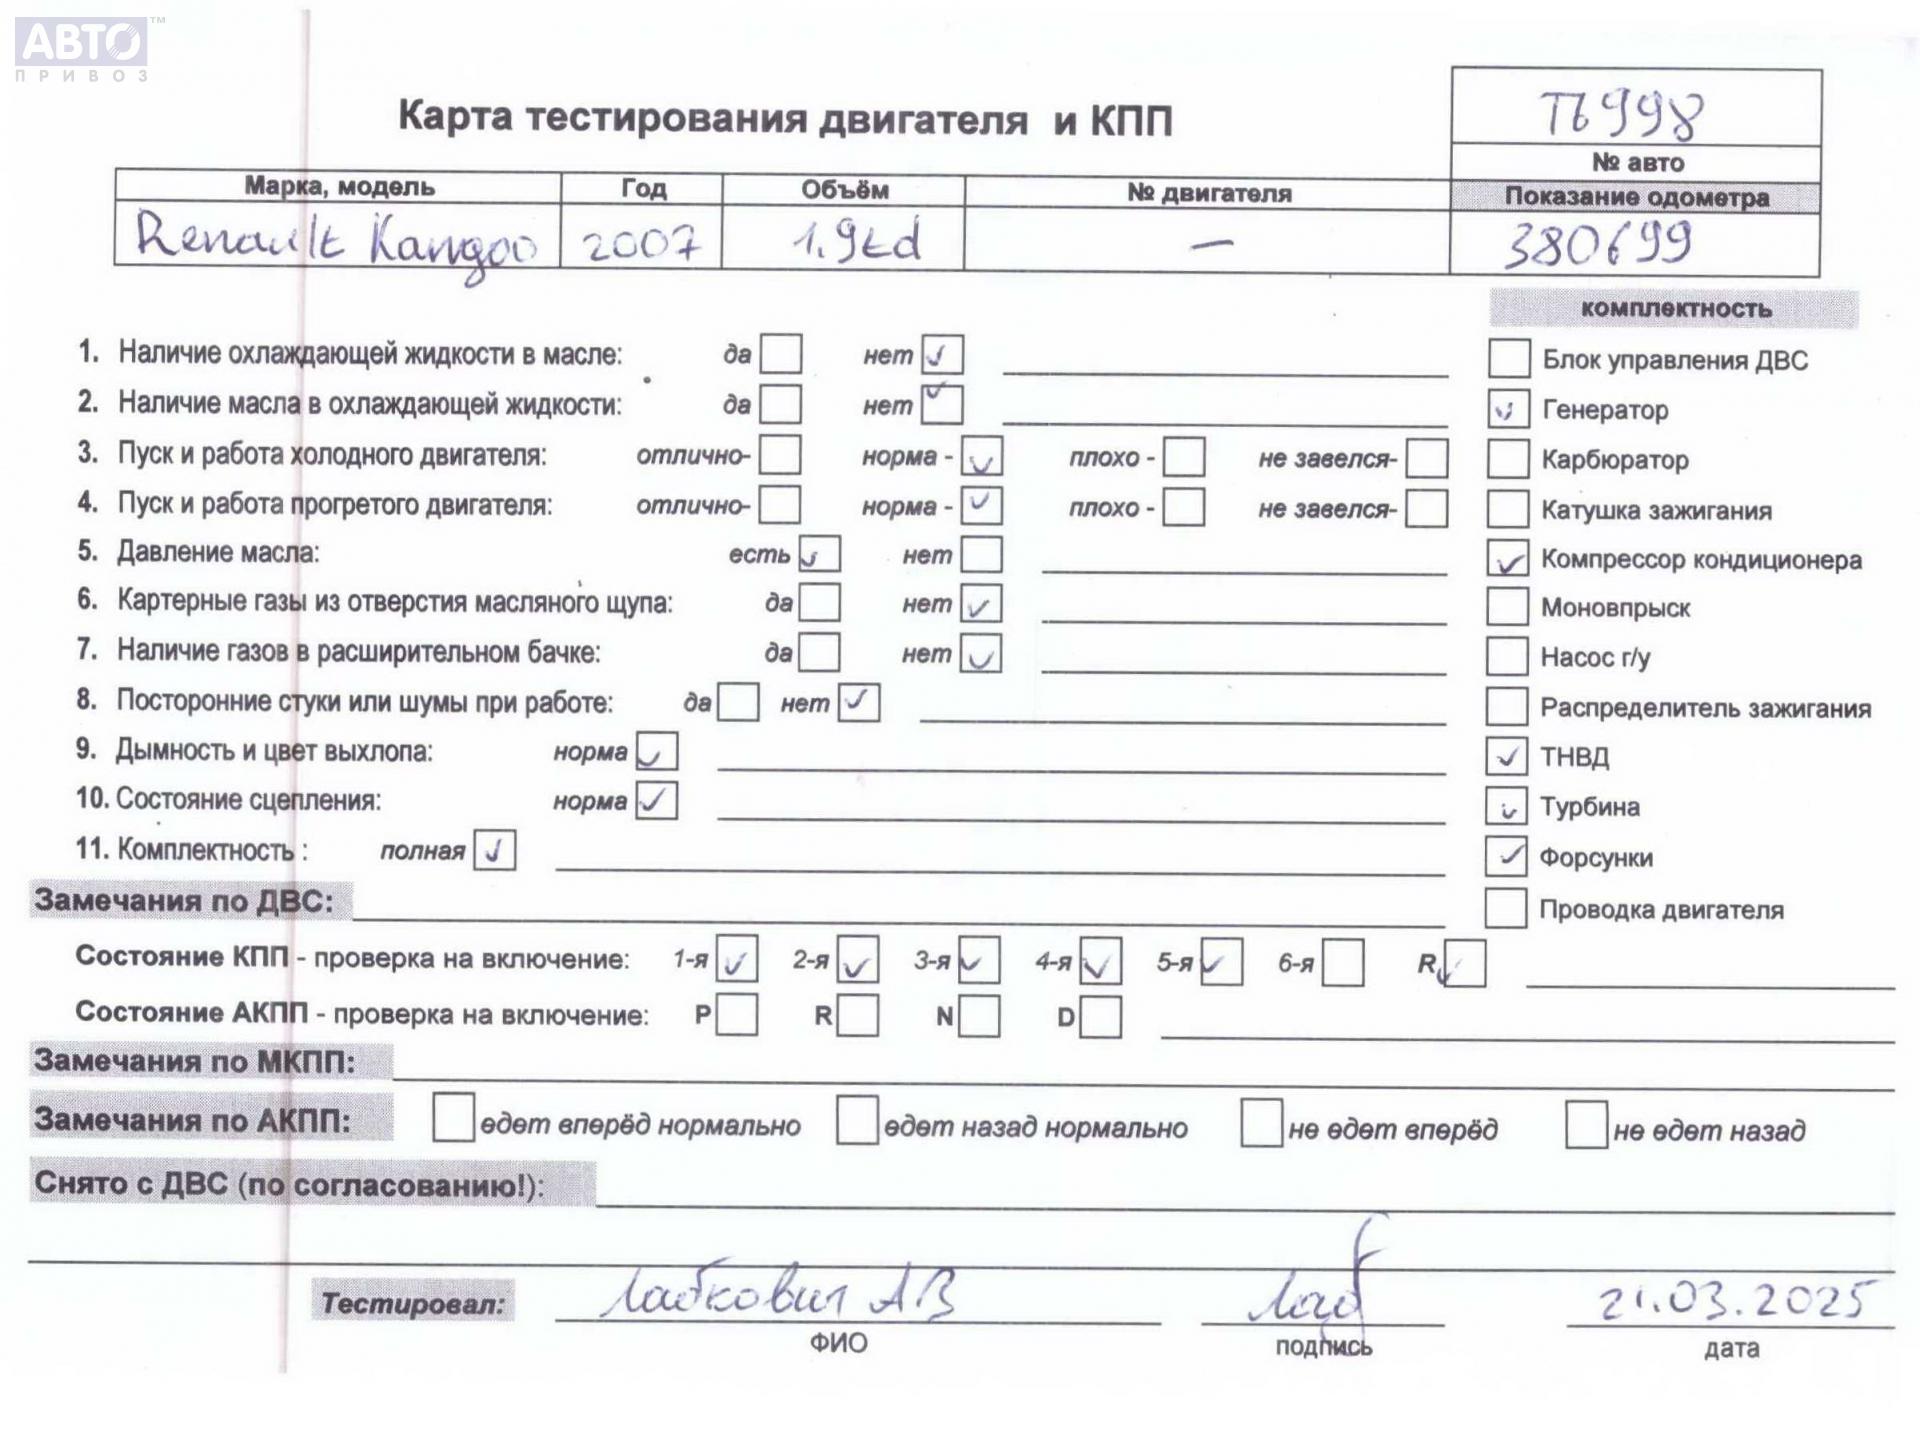 АВТО™
ПРИВОЗ
П6998
Карта тестирования двигателя и КПП
№ авто
Марка, модель Год Объём № двигателя Показание одометра
Renault Kangoo 2007 1.9td – 380699
комплектность
1. Наличие охлаждающей жидкости в масле: да нет ✓ Блок управления ДВС
2. Наличие масла в охлаждающей жидкости: да нет ✓ ✓ Генератор
3. Пуск и работа холодного двигателя: отлично- норма - ✓ плохо - не завелся- Карбюратор
4. Пуск и работа прогретого двигателя: отлично- норма - ✓ плохо - не завелся- Катушка зажигания
5. Давление масла: есть ✓ нет ✓ Компрессор кондиционера
6. Картерные газы из отверстия масляного щупа: да нет ✓ Моновпрыск
7. Наличие газов в расширительном бачке: да нет ✓ Насос г/у
8. Посторонние стуки или шумы при работе: да нет ✓ Распределитель зажигания
9. Дымность и цвет выхлопа: норма ✓ ✓ ТНВД
10. Состояние сцепления: норма ✓ ✓ Турбина
11. Комплектность : полная ✓ ✓ Форсунки
Замечания по ДВС: Проводка двигателя
Состояние КПП - проверка на включение: 1-я ✓ 2-я ✓ 3-я ✓ 4-я ✓ 5-я ✓ 6-я R ✓
Состояние АКПП - проверка на включение: P R N D
Замечания по МКПП:
Замечания по АКПП: едет вперёд нормально едет назад нормально не едет вперёд не едет назад
Снято с ДВС (по согласованию!):
Тестировал: Лабкович АВ Лаб 21.03.2025
ФИО подпись дата